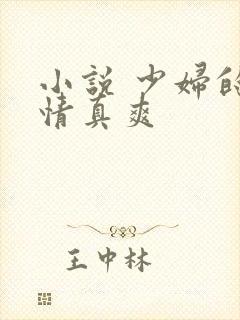 小説 少婦的
情真爽
王中林